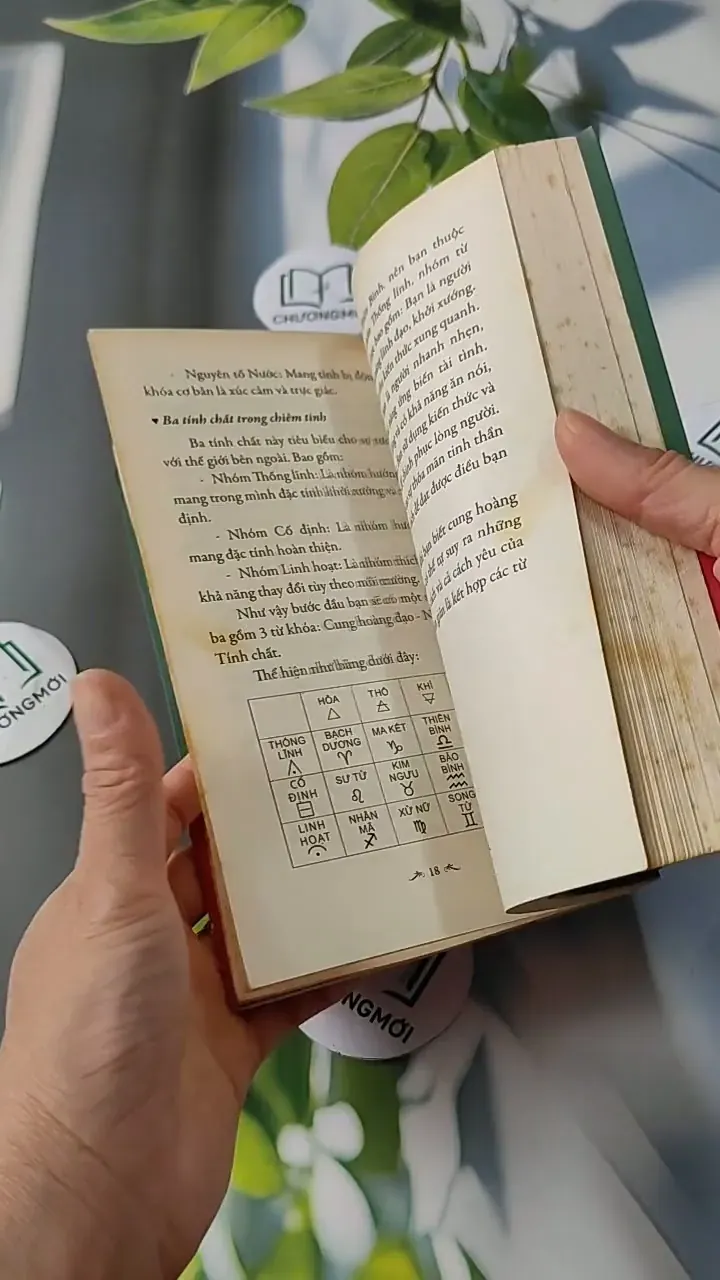 CHƯƠNGM
- Nguyên tố Nước: Mang tính bị độn
khóa cơ bản là xúc cảm và trực giác.
♥ Ba tính chất trong chiêm tinh
Ba tính chất này tiêu biểu cho sự
với thế giới bên ngoài. Bao gồm:
- Nhóm Thống lĩnh: Là nhóm hướng
mang trong mình đặc tính khởi xướng và
định.
- Nhóm Cố định: Là nhóm
mang đặc tính hoàn thiện.
- Nhóm Linh hoạt: Là nhóm thích
khả năng thay đổi tùy theo môi trường.
Như vậy bước đầu bạn sẽ có một
ba gồm 3 từ khóa: Cung hoàng đạo - N
Tính chất.
Thể hiện như bảng dưới đây:
HỎA THỔ KHÍ
🜂 🜃 🜁
THỐNG LĨNH BẠCH DƯƠNG ♈ MA KẾT ♑ THIÊN BÌNH ♎
CỐ ĐỊNH SƯ TỬ ♌ KIM NGƯU ♉ BẢO BÌNH ♒
LINH HOẠT NHÂN MÃ ♐ XỬ NỮ ♍ SONG TỬ ♊
18
Bình, nên bạn thuộc
Thống lĩnh, nhóm từ
bao gồm: Bạn là người
lãnh đạo, khởi xướng,
kiến thức xung quanh.
là người nhanh nhẹn,
ứng biến tài tình.
có khả năng ăn nói,
sử dụng kiến thức và
phục lòng người.
thỏa mãn tinh thần
đạt được điều bạn
bạn biết cung hoàng
thể tự suy ra những
và cả cách yêu của
giản là kết hợp các từ
ƯƠNGMỚI
NGMỚI